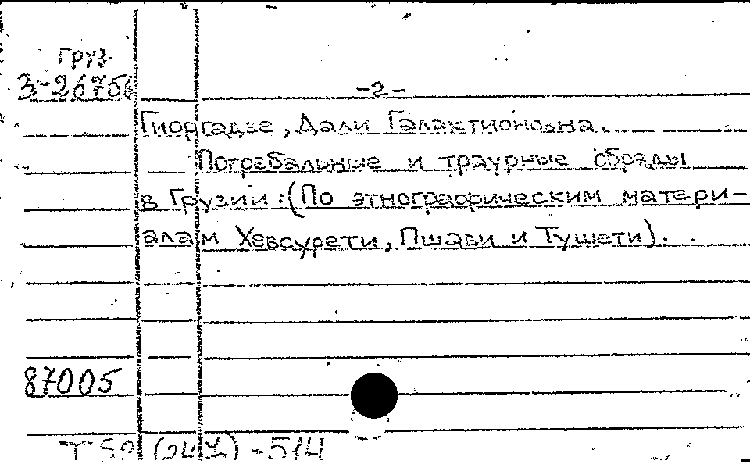 Груз
3-26756
-2-
Гиоргадзе, Дали Галактионовна.
Погребальные и траурные обряды
в Грузии: (По этнографическим матери-
алам Хевсурети, Пшави и Тушети).
87005
-514